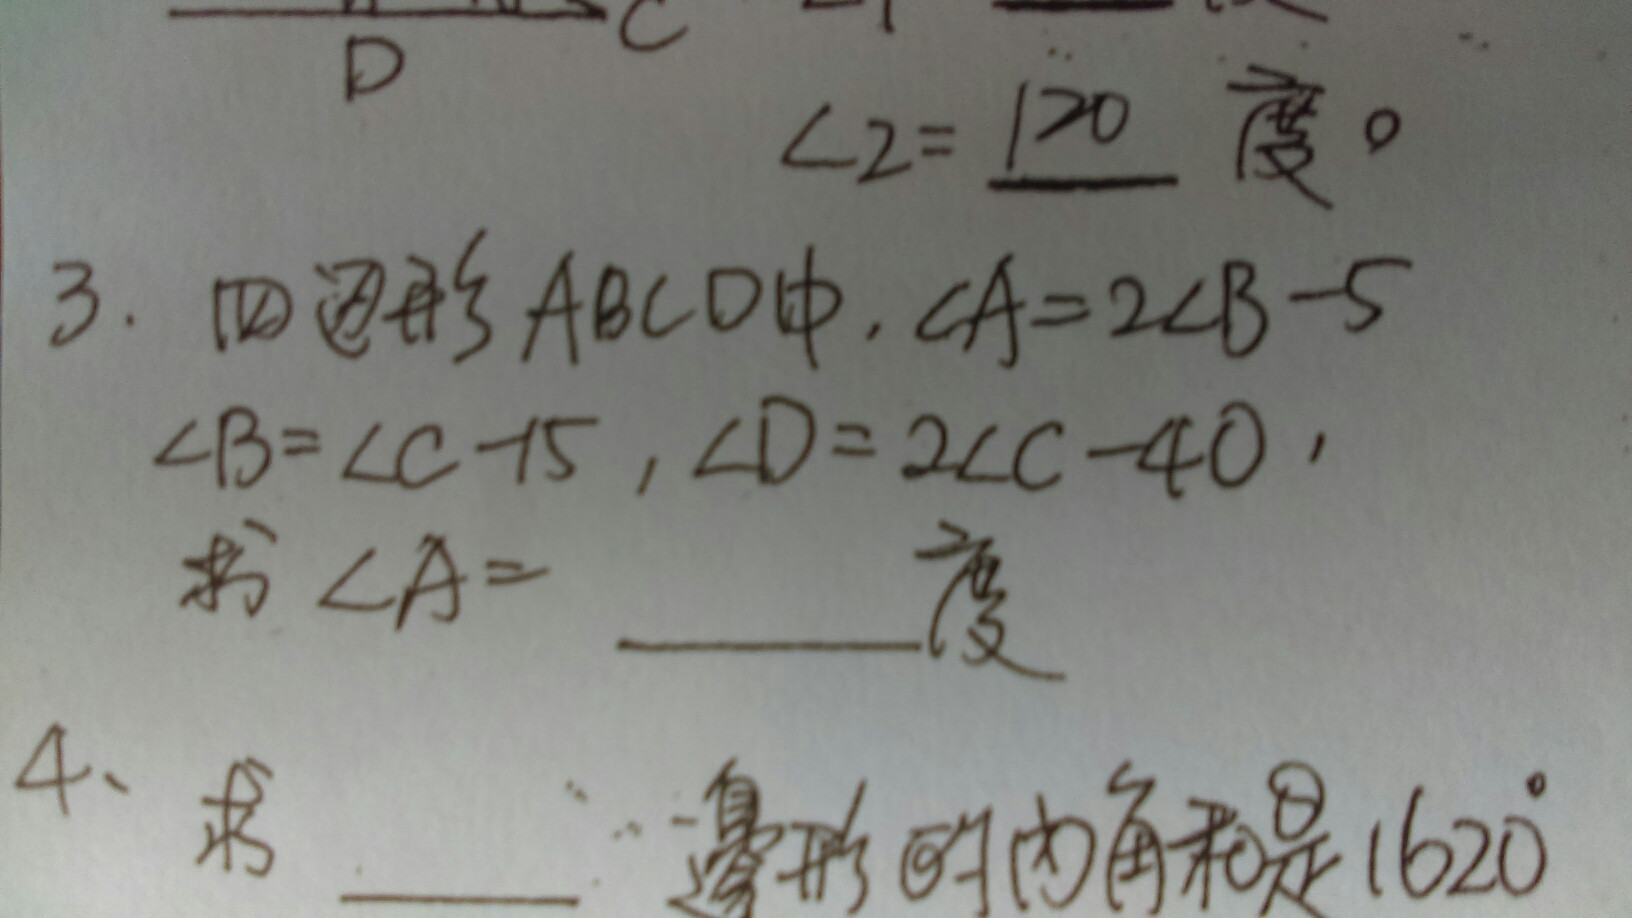 D C
∠2= 120 度。
3. 四边形ABCD中, ∠A=2∠B-5
∠B=∠C-15, ∠D=2∠C-40,
求∠A= ____ 度
4、求 ____ 邊形的内角和是1620°